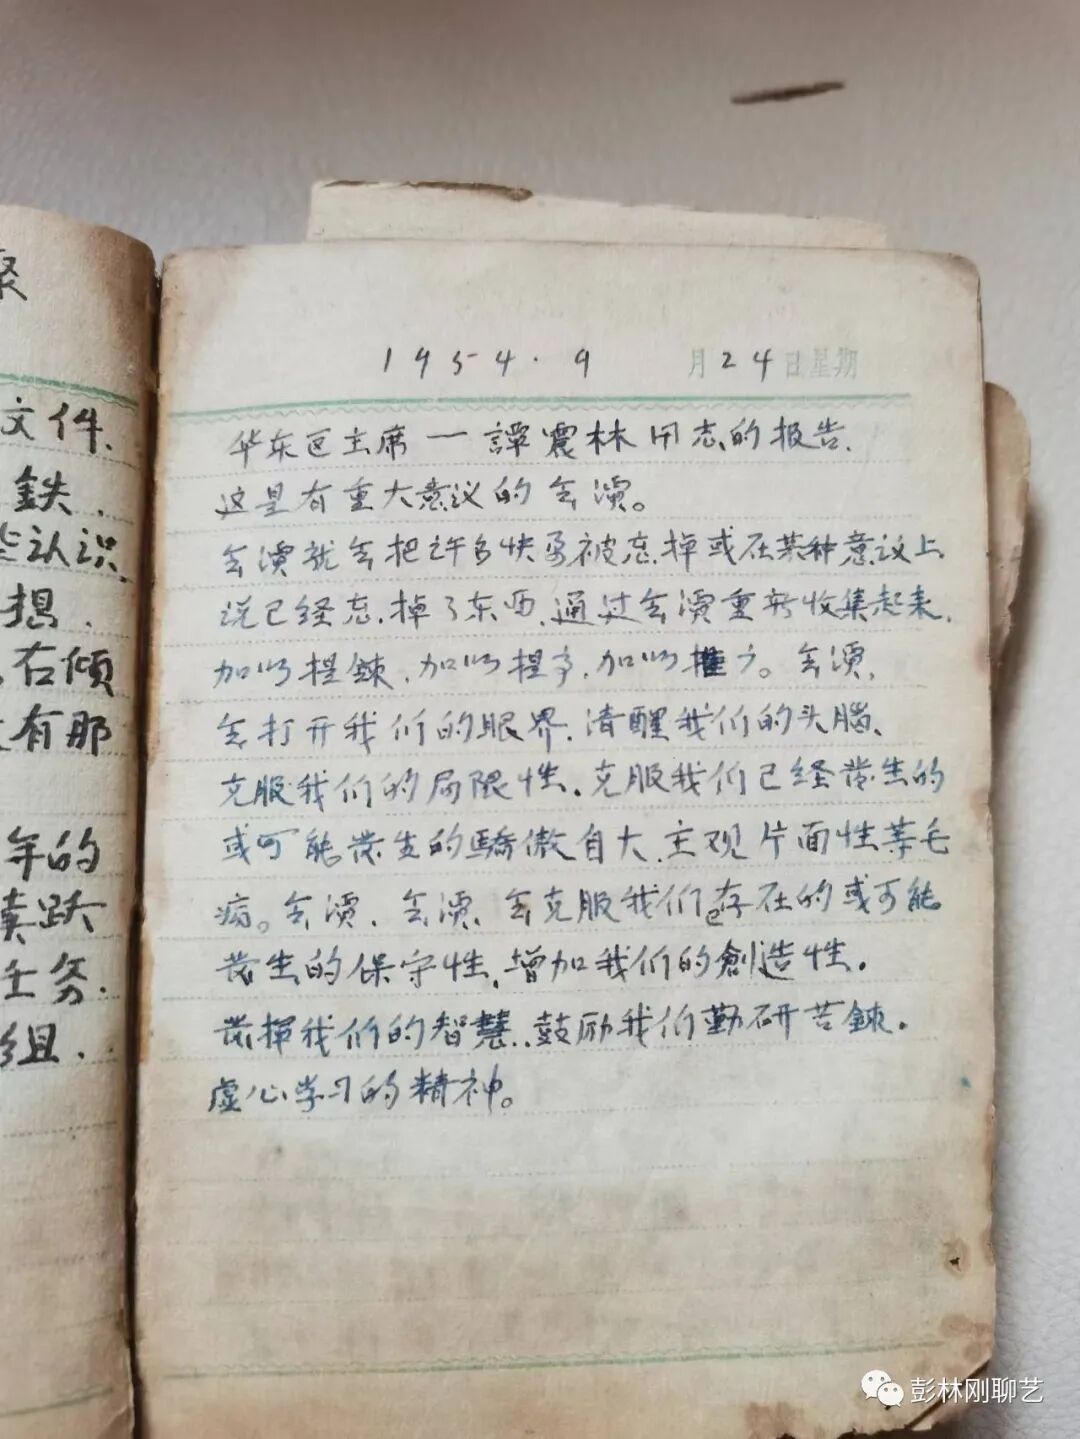 聚
文件.
鉄.
些认识.
想.
右傾
有那
年的
跃
任务.
组.
1954.9 月24日星期
华东区主席一譚震林同志的报告.
这是有重大意议的会演。
会演就会把许多快要被忘掉或在某种意议上
说已经忘掉了东西.通过会演重新收集起来.
加以提鍊.加以提高.加以推广。会演,
会打开我们的眼界.清醒我们的头脑、
克服我们的局限性.克服我们已经发生的
或可能发生的驕傲自大.主观片面性等毛
病。会演、会演、会克服我们存在的或可能
发生的保守性.增加我们的創造性.
发揮我们的智慧..鼓励我们勤研苦鍊.
虚心学习的精神。
彭林刚聊艺